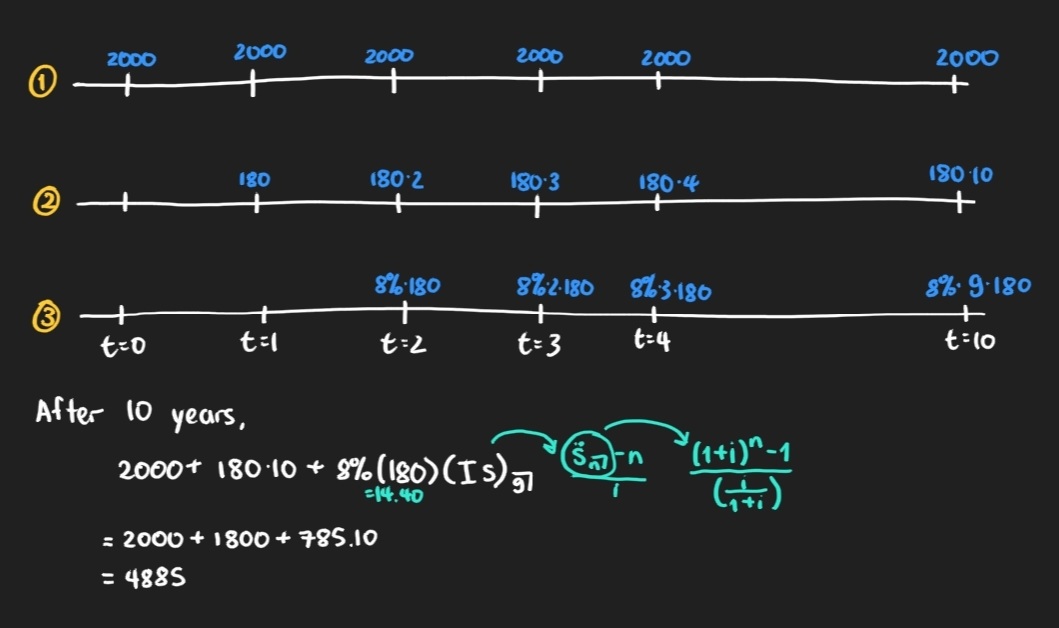 2000 2000 2000 2000 2000 2000
①
180 180·2 180·3 180·4 180·10
②
8%·180 8%·2·180 8%·3·180 8%·9·180
③
t=0 t=1 t=2 t=3 t=4 t=10
After 10 years,
2000 + 180·10 + 8%(180)(Is)9̅| s̈n̅| - n / i (1+i)ⁿ - 1 / (i/1+i)
=14.40
= 2000 + 1800 + 785.10
= 4885